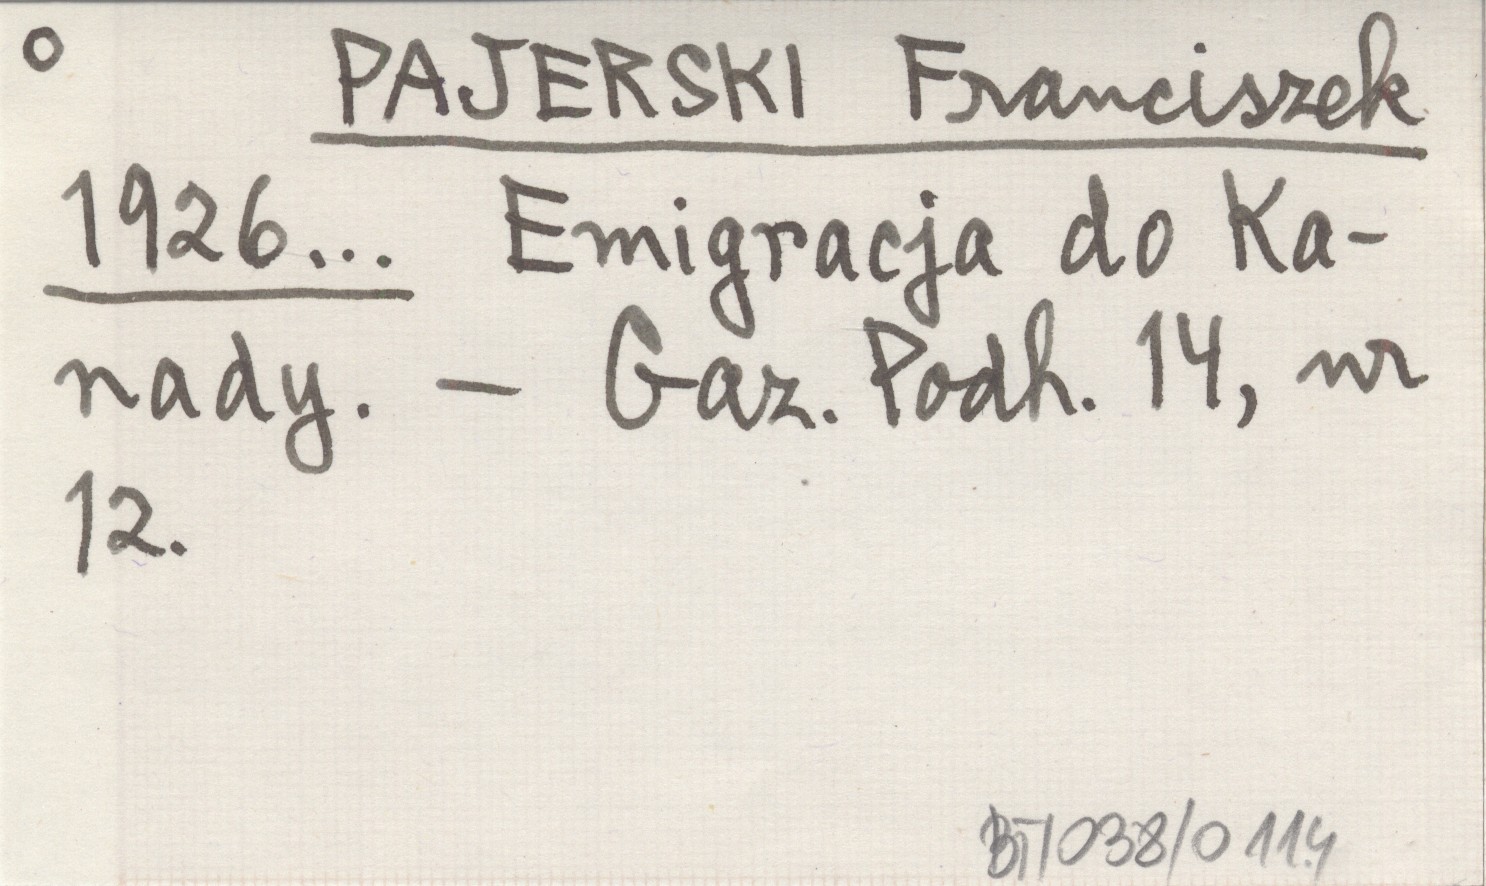 o PAJERSKI Franciszek
1926... Emigracja do Ka-
nady. - Gaz. Podh. 14, nr
12.
BT/038/0 114